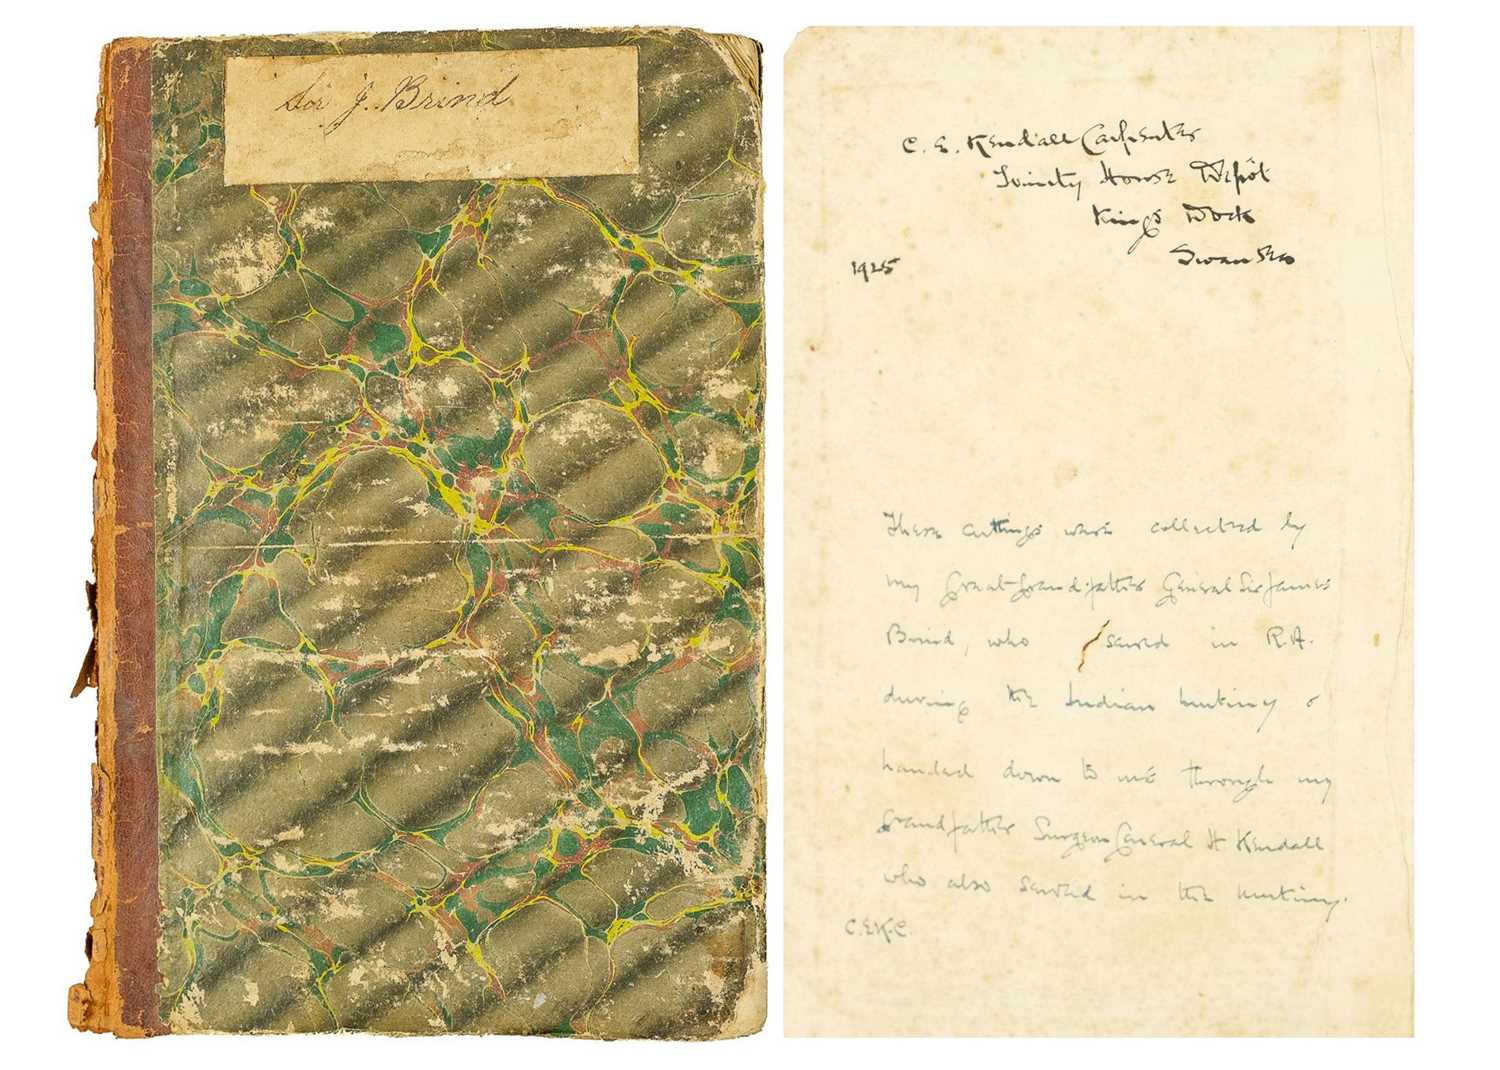 Sir J. Brind
C. E. Kendall Carpenter
Trinity House Depôt
Kings Dock
Swansea
1925
These cuttings were collected by
my Great Grandfather General Sir James
Brind, who served in R.A.
during the Indian Mutiny &
handed down to me through my
Grandfather Surgeon General H Kendall
who also served in the mutiny.
C.E.K.C.